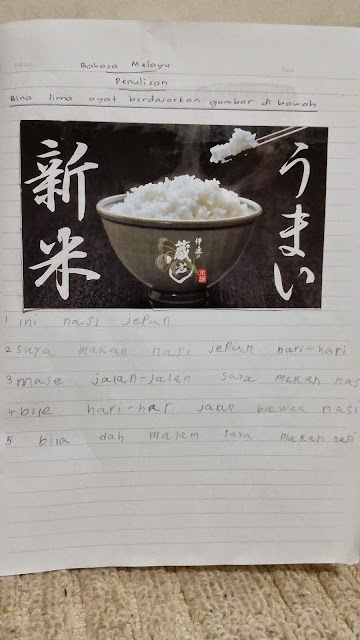 Bahasa Melayu
Penulisan
Bina lima ayat berdasarkan gambar di bawah
新米
うまい
蔵出し
本舗
1 ini nasi Jepun
2 saya makan nasi jepun hari-hari
3 mase jalan-jalan saya makan nas
4 bile hari-hari jalan bawak nasi
5 bila dah malam saya makan nasi